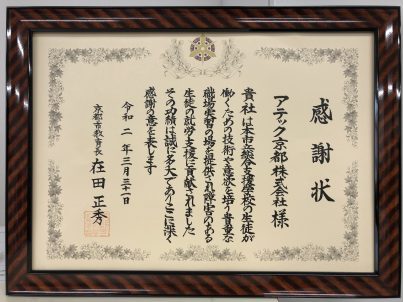 感謝状
アテック京都株式会社様
貴社は本市立総合支援学校の生徒が
働くための技術や意欲を培う貴重な
職場実習の場を提供され障害のある
生徒の就労支援に貢献されました
その功績は誠に多大でありここに深く
感謝の意を表します
令和二年三月三十一日
京都市教育長 在田正秀